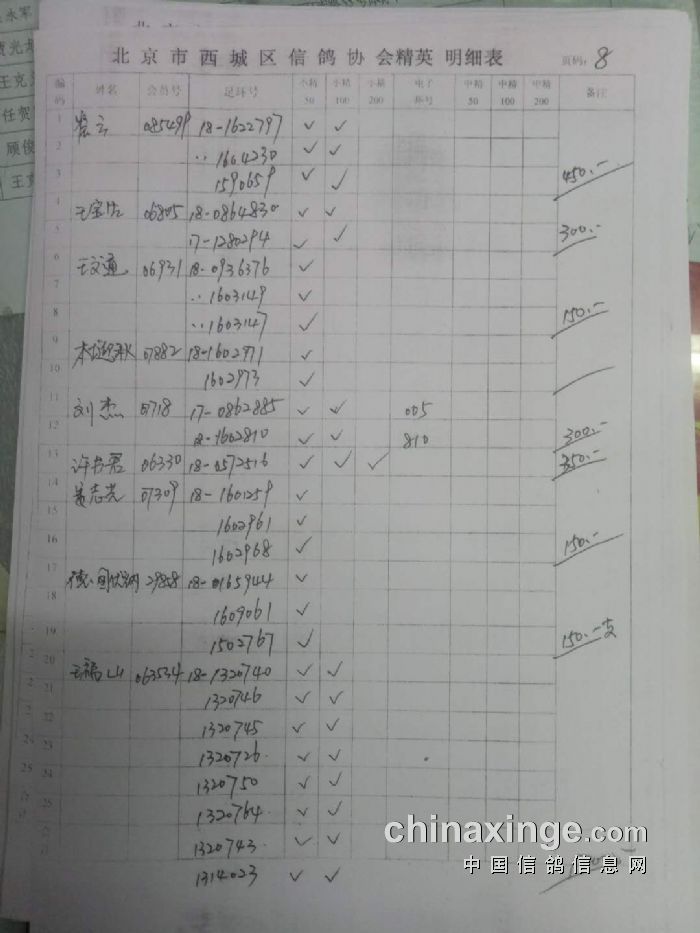 北京市西城区信鸽协会精英 明细表 页码: 8
编码 姓名 会员号 足环号 小精50 小精100 小精200 电子环号 中精50 中精100 中精200 备注
1 085499 18-1622797 ✓ ✓
2 1604230 ✓ ✓
3 1590659 ✓ 450.-
4 06805 18-0864830 ✓ ✓
5 17-1280294 ✓ ✓ 300.-
6 王文通 06931 18-0936376 ✓
7 ..1603149 ✓
8 ..1603147 ✓ 150.-
9 07882 18-1602971 ✓
10 1602973 ✓
11 刘杰 0718 17-0862885 ✓ ✓ 005
12 18-1602810 ✓ ✓ 810 300.-
13 06330 18-0572516 ✓ ✓ ✓ 350.-
14 07309 18-1601259 ✓
15 1602961 ✓
16 1602968 ✓ 150.-
17 29858 18-0165944 ✓
18 1609061 ✓
19 1502767 ✓ 150.-支
20 王福山 063534 18-1320740 ✓ ✓
21 1320746 ✓ ✓
22 1320745 ✓ ✓
23 1320726 ✓ ✓
24 1320750 ✓ ✓
25 1320764 ✓ ✓
1320743 ✓ ✓
1314023 ✓ ✓
chinaxinge.com
中国信鸽信息网